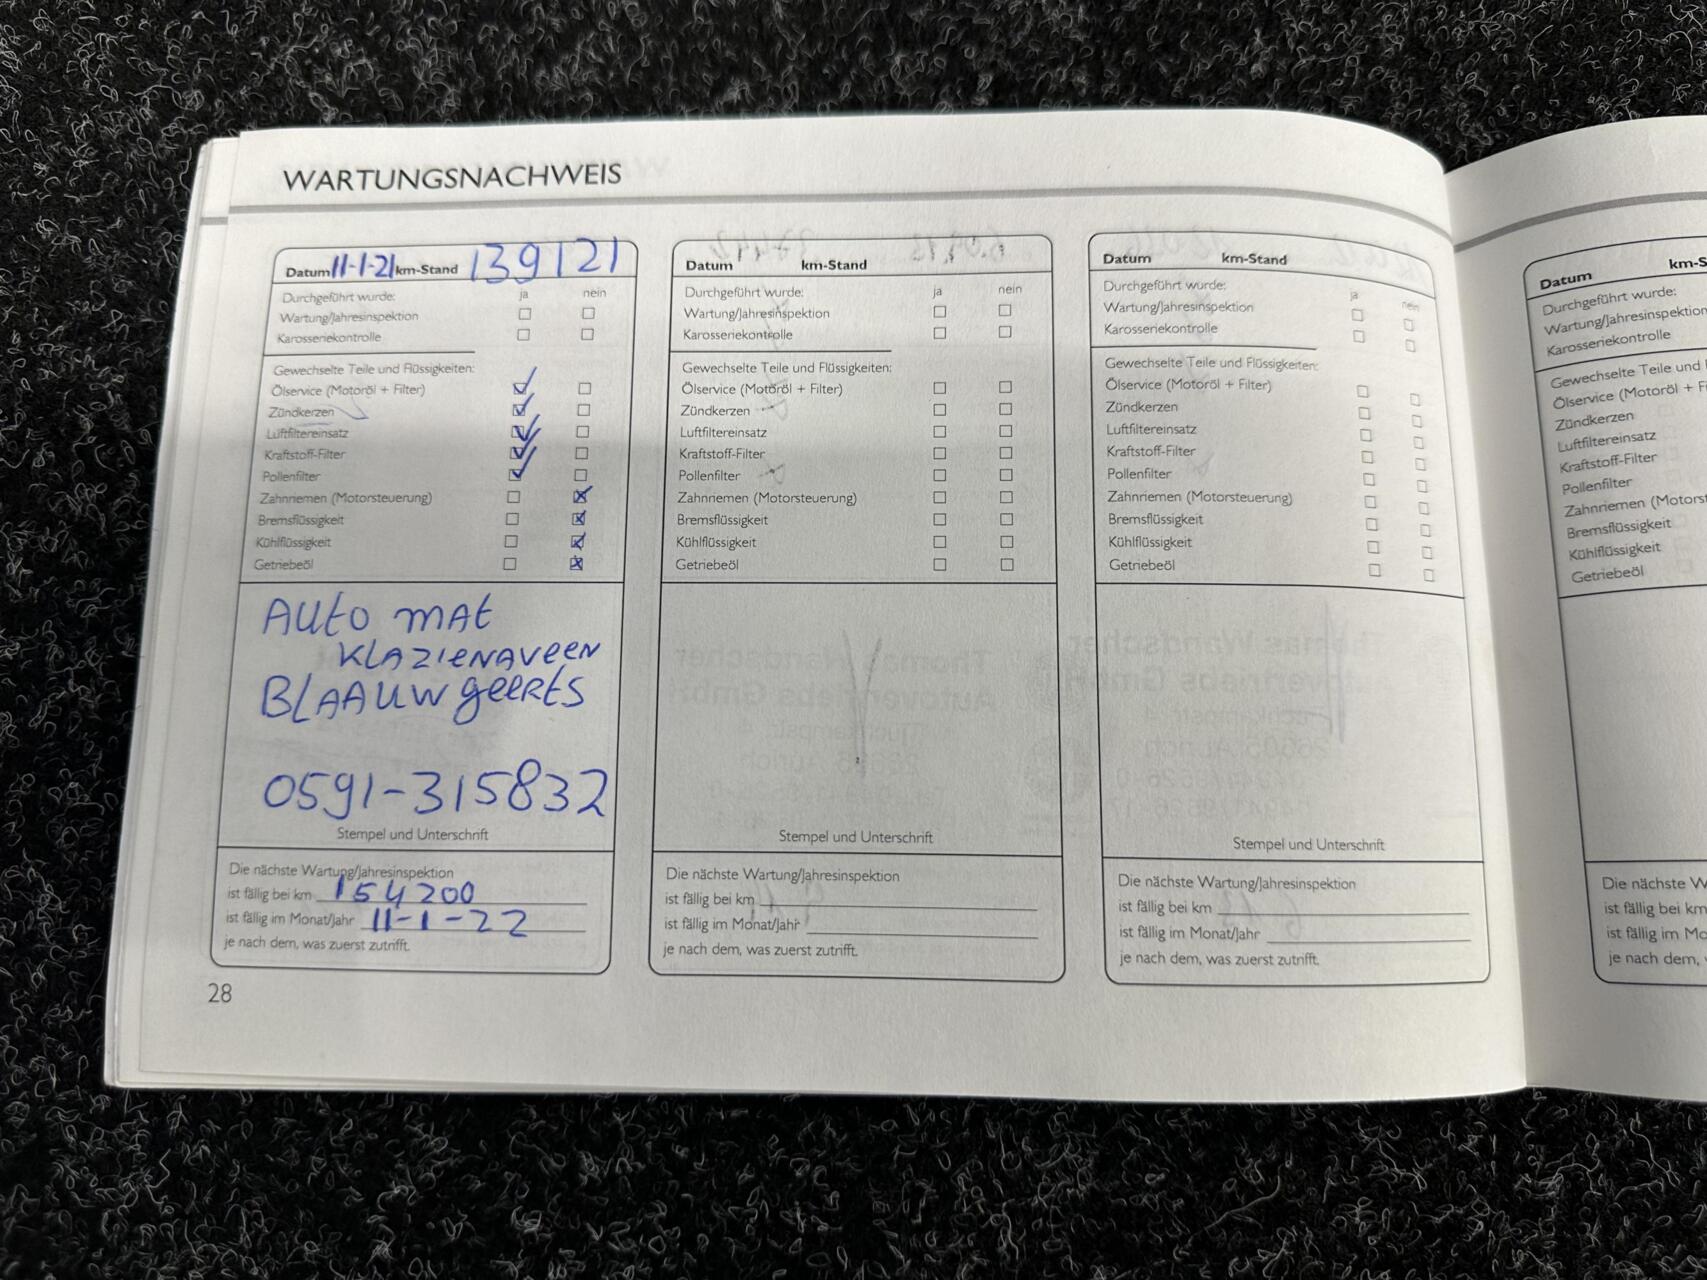 WARTUNGSNACHWEIS
Datum 11-1-21 km-Stand 139121
Durchgeführt wurde: ja nein
Wartung/Jahresinspektion
Karosseriekontrolle
Gewechselte Teile und Flüssigkeiten:
Ölservice (Motoröl + Filter)
Zündkerzen
Luftfiltereinsatz
Kraftstoff-Filter
Pollenfilter
Zahnriemen (Motorsteuerung)
Bremsflüssigkeit
Kühlflüssigkeit
Getriebeöl
AUto mAt
KLAZIENAVEEN
BLAAUW geeRts
0591-315832
Stempel und Unterschrift
Die nächste Wartung/Jahresinspektion
ist fällig bei km 154200
ist fällig im Monat/Jahr 11-1-22
je nach dem, was zuerst zutrifft.
28
Datum km-Stand
Durchgeführt wurde: ja nein
Wartung/Jahresinspektion
Karosseriekontrolle
Gewechselte Teile und Flüssigkeiten:
Ölservice (Motoröl + Filter)
Zündkerzen
Luftfiltereinsatz
Kraftstoff-Filter
Pollenfilter
Zahnriemen (Motorsteuerung)
Bremsflüssigkeit
Kühlflüssigkeit
Getriebeöl
Stempel und Unterschrift
Die nächste Wartung/Jahresinspektion
ist fällig bei km
ist fällig im Monat/Jahr
je nach dem, was zuerst zutrifft.
Datum km-Stand
Durchgeführt wurde: ja nein
Wartung/Jahresinspektion
Karosseriekontrolle
Gewechselte Teile und Flüssigkeiten:
Ölservice (Motoröl + Filter)
Zündkerzen
Luftfiltereinsatz
Kraftstoff-Filter
Pollenfilter
Zahnriemen (Motorsteuerung)
Bremsflüssigkeit
Kühlflüssigkeit
Getriebeöl
Stempel und Unterschrift
Die nächste Wartung/Jahresinspektion
ist fällig bei km
ist fällig im Monat/Jahr
je nach dem, was zuerst zutrifft.
Datum km-S
Durchgeführt wurde:
Wartung/Jahresinspektion
Karosseriekontrolle
Gewechselte Teile und F
Ölservice (Motoröl + Filter
Zündkerzen
Luftfiltereinsatz
Kraftstoff-Filter
Pollenfilter
Zahnriemen (Motorst
Bremsflüssigkeit
Kühlflüssigkeit
Getriebeöl
Die nächste W
ist fällig bei km
ist fällig im Mo
je nach dem,